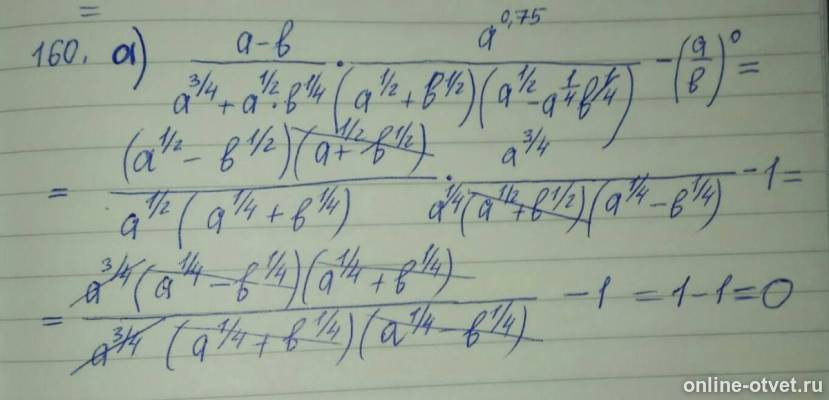 =
160. а) (a-в)/(a^3/4 + a^1/2·в^1/4) · a^0,75/((a^1/2 + в^1/2)(a^1/2 - a^1/4 в^1/4)) - (a/в)^0 =
= ((a^1/2 - в^1/2)(a + в^1/2))/(a^1/2 (a^1/4 + в^1/4)) · a^3/4/(a^1/4 (a^1/2 + в^1/2)(a^1/4 - в^1/4)) - 1 =
= (a^3/4 (a^1/4 - в^1/4)(a^1/4 + в^1/4))/(a^3/4 (a^1/4 + в^1/4)(a^1/4 - в^1/4)) - 1 = 1 - 1 = 0
online-otvet.ru